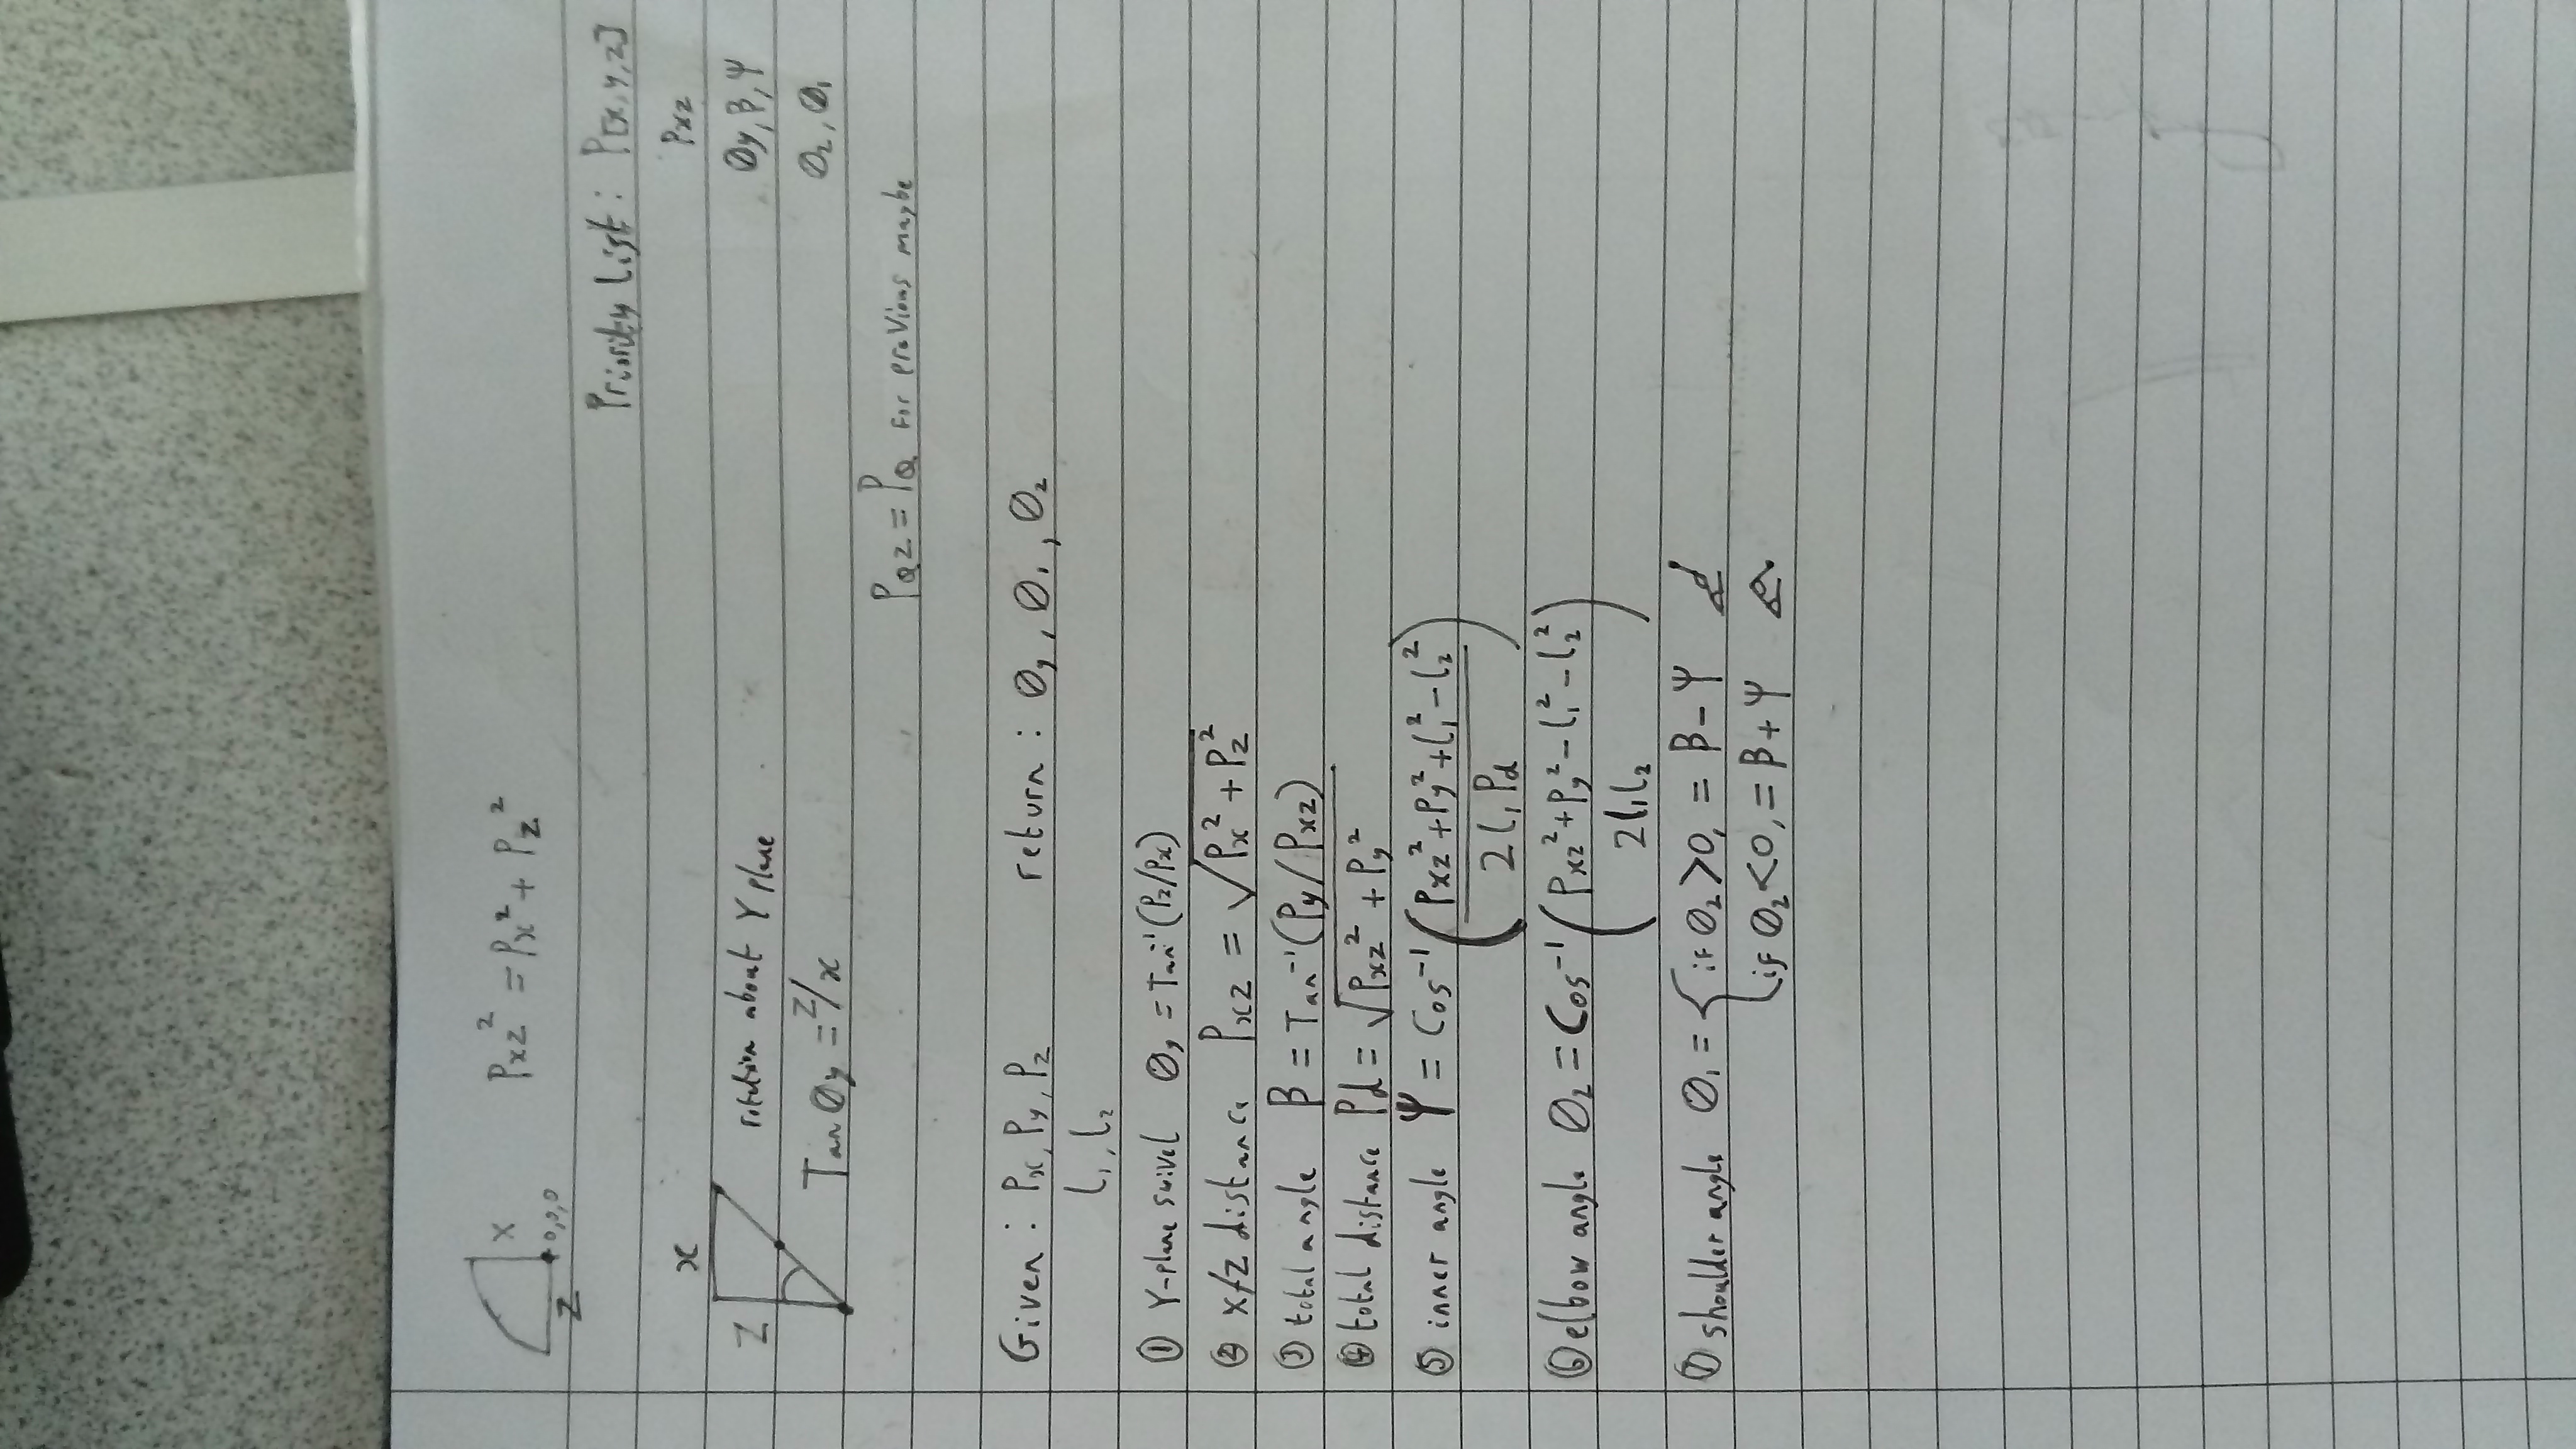 X
Pxz² = Px² + Pz²
0,0,0
Z
Priority List: P[x,y,z]
x
Pxz
Z
rotation about Y plane
Øy, β, Ψ
Tan Øy = z/x
Ø₂, Ø₁
PQz = PQ for previous maybe
Given: Px, Py, Pz return: Øy, Ø₁, Ø₂
l₁, l₂
① Y-plane swivel Øy = Tan⁻¹(Pz/Px)
② x/z distance Pxz = √(Px² + Pz²)
③ total angle β = Tan⁻¹(Py/Pxz)
④ total distance Pd = √(Pxz² + Py²)
⑤ inner angle Ψ = Cos⁻¹((Pxz² + Py² + l₁² - l₂²) / 2l₁Pd)
⑥ elbow angle Ø₂ = Cos⁻¹((Pxz² + Py² - l₁² - l₂²) / 2l₁l₂)
⑦ shoulder angle Ø₁ = { if Ø₂ > 0, = β - Ψ
if Ø₂ < 0, = β + Ψ